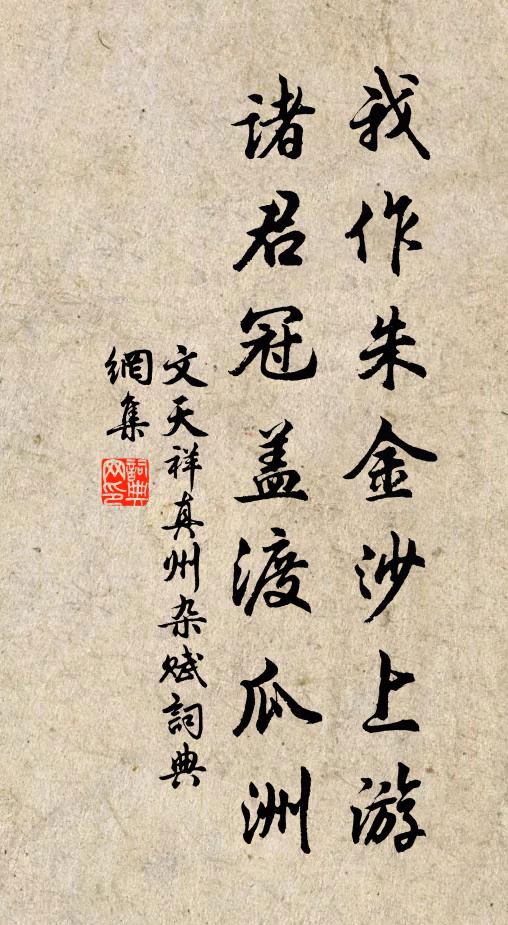 我作朱金沙上游
诸君冠盖渡瓜洲
文天祥真州杂赋詞典
網集
詞典网印